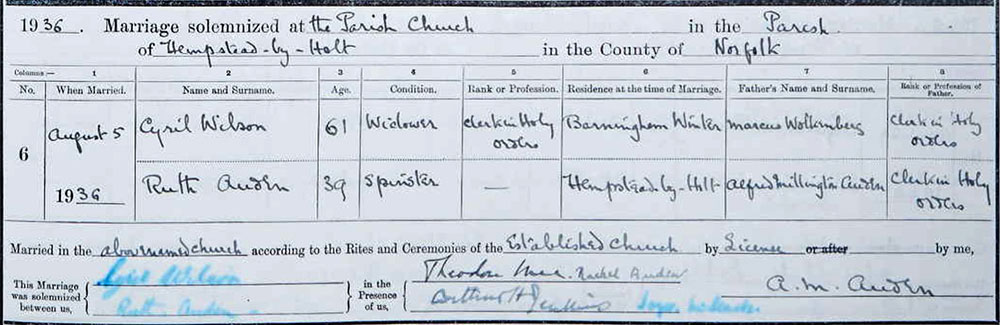 1936. Marriage solemnized at the Parish Church in the Parish
of Hempstead-by-Holt in the County of Norfolk
Columns:— 1 2 3 4 5 6 7 8
No. When Married. Name and Surname. Age. Condition. Rank or Profession. Residence at the time of Marriage. Father's Name and Surname. Rank or Profession of Father.
6 August 5 Cyril Wilson 61 Widower Clerk in Holy orders Barningham Winter Marcus Clerk in Holy orders
1936 Ruth Auden 39 Spinster — Hempstead-by-Holt Alfred Millington Auden Clerk in Holy orders
Married in the abovenamed church according to the Rites and Ceremonies of the Established Church by License or after by me,
This Marriage was solemnized between us, Cyril Wilson Ruth Auden in the Presence of us, Theodore Rachel Auden Arthur H Jenkins A. M. Auden